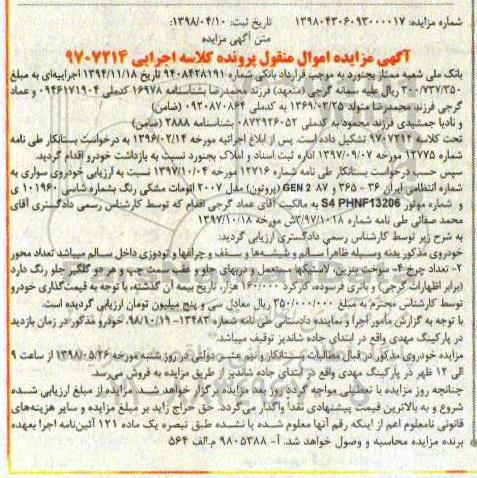 شماره مزایده: ۱۳۹۸۰۴۳۰۶۰۹۳۰۰۰۰۱۷ تاریخ ثبت: ۱۳۹۸/۰۴/۱۰
متن آگهی مزایده
آگهی مزایده اموال منقول پرونده کلاسه اجرایی ۹۷۰۷۲۱۴
بانک ملی شعبه ممتاز بجنورد به موجب قرارداد بانکی شماره ۹۴۰۸۴۲۸۱۹۱ تاریخ ۱۳۹۴/۱۱/۱۸ اجراییه‌ای به مبلغ
۳۰۰/۷۳۷/۳۵۰ ریال علیه سمانه گرجی (متعهد) فرزند محمدرضا بشناسنامه ۱۶۹۷۸ کدملی ۰۹۴۶۱۷۱۹۰۴ و عماد
گرجی فرزند محمدرضا متولد ۱۳۶۹/۰۳/۲۵ به کدملی ۰۹۲۰۸۷۰۸۶۴ (ضامن)
و نادیا جمشیدی فرزند محمود به کدملی ۰۸۷۲۹۲۶۰۵۲ بشناسنامه ۲۸۸۸ (ضامن)
تحت کلاسه ۹۷۰۷۲۱۴ تشکیل داده است. پس از ابلاغ اجرائیه مورخه ۱۳۹۶/۰۲/۱۴ به درخواست بستانکار طی نامه
شماره ۱۲۷۷۵ مورخه ۱۳۹۷/۰۹/۰۷ اداره ثبت اسناد و املاک بجنورد نسبت به بازداشت خودرو اقدام گردید.
سپس حسب درخواست بستانکار طی نامه شماره ۱۲۷۱۶ مورخه ۱۳۹۷/۱۰/۰۴ نسبت به ارزیابی خودروی سواری به
شماره انتظامی ایران ۳۶ - ۳۶۵ و ۸۷ GEN 2 (پروتون) مدل ۲۰۰۷ اتومات مشکی رنگ بشماره شاسی ۱۰۱۹۶۰ ی
و شماره موتور S4 PHNF13206 به مالکیت آقای عماد گرجی اقدام که توسط کارشناس رسمی دادگستری آقای
محمد صفائی طی نامه شماره ۳/۹۷/۱۰۱۸ش مورخه ۱۳۹۷/۱۰/۱۸
به شرح زیر توسط کارشناس رسمی دادگستری ارزیابی گردید:
خودروی مذکور بدنه وسیله ظاهرا سالم و شیشه‌ها و سقف و چراغها و تودوزی داخل سالم میباشد تعداد محور
۲- تعداد چرخ ۴- سوخت بنزین، لاستیکها مستعمل و دربهای جلو و عقب سمت چپ و هر دو گلگیر جلو رنگ دارد
(برابر اظهارات گرجی) و باتری فرسوده، کارکرد ۱۶۰/۰۰۰ هزار، تاریخ بیمه آن گذشته، با توجه به قیمت‌گذاری خودرو
توسط کارشناس محترم به مبلغ ۳۵۰/۰۰۰/۰۰۰ ریال معادل سی و پنج میلیون تومان ارزیابی گردیده است.
با توجه به گزارش مامور اجرا و نماینده دادستانی طی نامه شماره ۱۳۴۸۳- ۹۸/۱۰/۱۹، خودرو مذکور در زمان بازدید
در پارکینگ مهدی واقع در ابتدای جاده شاندیز توقیف میباشد.
مزایده خودروی مذکور در قبال مطالبات بستانکار و نیم عشر دولتی در روز شنبه مورخه ۱۳۹۸/۰۵/۲۶ از ساعت ۹
الی ۱۲ ظهر در پارکینگ مهدی واقع در ابتدای جاده شاندیز از طریق مزایده به فروش می‌رسد.
چنانچه روز مزایده با تعطیلی مواجه گردد روز بعد مزایده برگزار خواهد شد. مزایده از مبلغ ارزیابی شده
شروع و به بالاترین قیمت پیشنهادی نقدا واگذار می‌گردد. حق حراج زاید بر مبلغ مزایده و سایر هزینه‌های
قانونی نامعلوم اعم از اینکه رقم آنها معلوم شده یا نشده طبق تبصره یک ماده ۱۲۱ آئین‌نامه اجرا بعهده
برنده مزایده محاسبه و وصول خواهد شد. آ- ۹۸۰۵۳۸۸ م.الف ۵۶۴